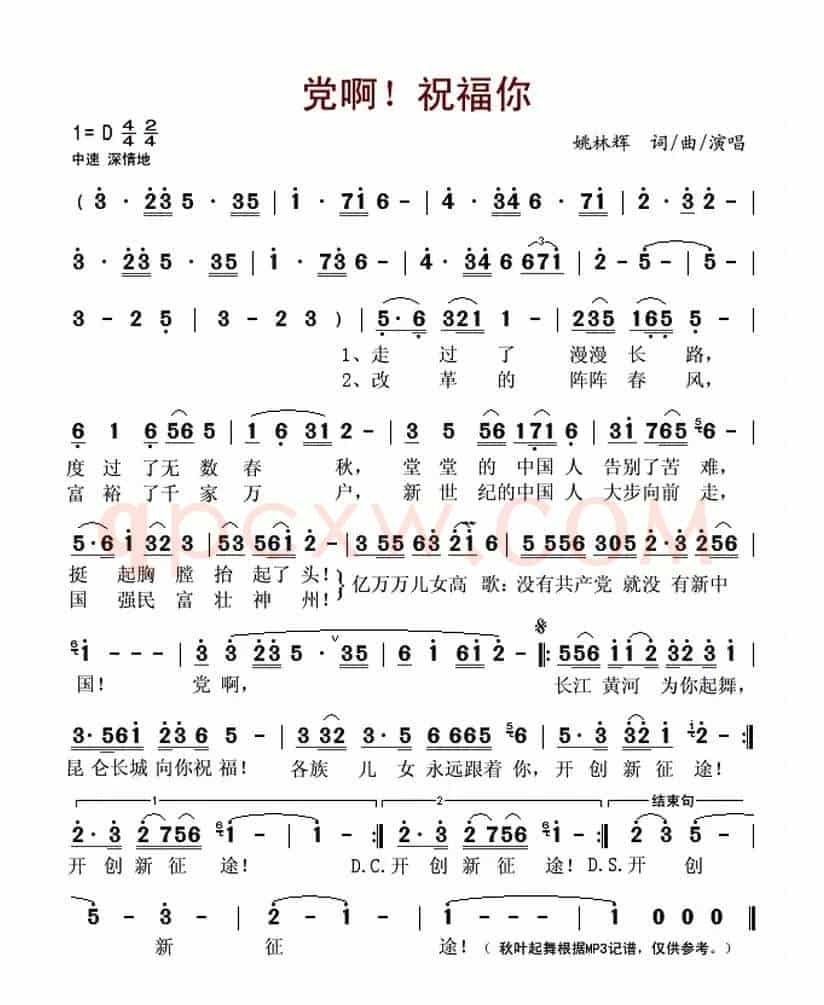 党啊！祝福你
1=D 4/4 2/4
姚林辉 词/曲/演唱
中速 深情地
(3·235·35|1·716-|4·346·71|2·32-|
3·235·35|1·736-|4·346671|2-5-|5-|
3-25|3-23)|5·63211-|2351655-|
1、走过了漫漫长路，
2、改革的阵阵春风，
616565|16312-|35561716|3176556-|
度过了无数春秋，堂堂的中国人告别了苦难，
富裕了千家万户，新世纪的中国人大步向前走，
5·61323|535612-|35563216|55563052·3256|
挺起胸膛抬起了头！}亿万万儿女高歌：没有共产党就没有新中
国强民富壮神州！
61---|33235·35|61612-|:556112323231|
国！党啊，长江黄河为你起舞，
3·561235-|3323·5666556|5·33212-:|
昆仑长城向你祝福！各族儿女永远跟着你，开创新征途！
1 2 结束句
2·3275661-|1-:|2·3275661-:|235-|
开创新征途！D.C.开创新征途！D.S.开创
5-3-|2-1-|1---|1000|
新征途！（秋叶起舞根据MP3记谱，仅供参考。）
qpcxw.COM